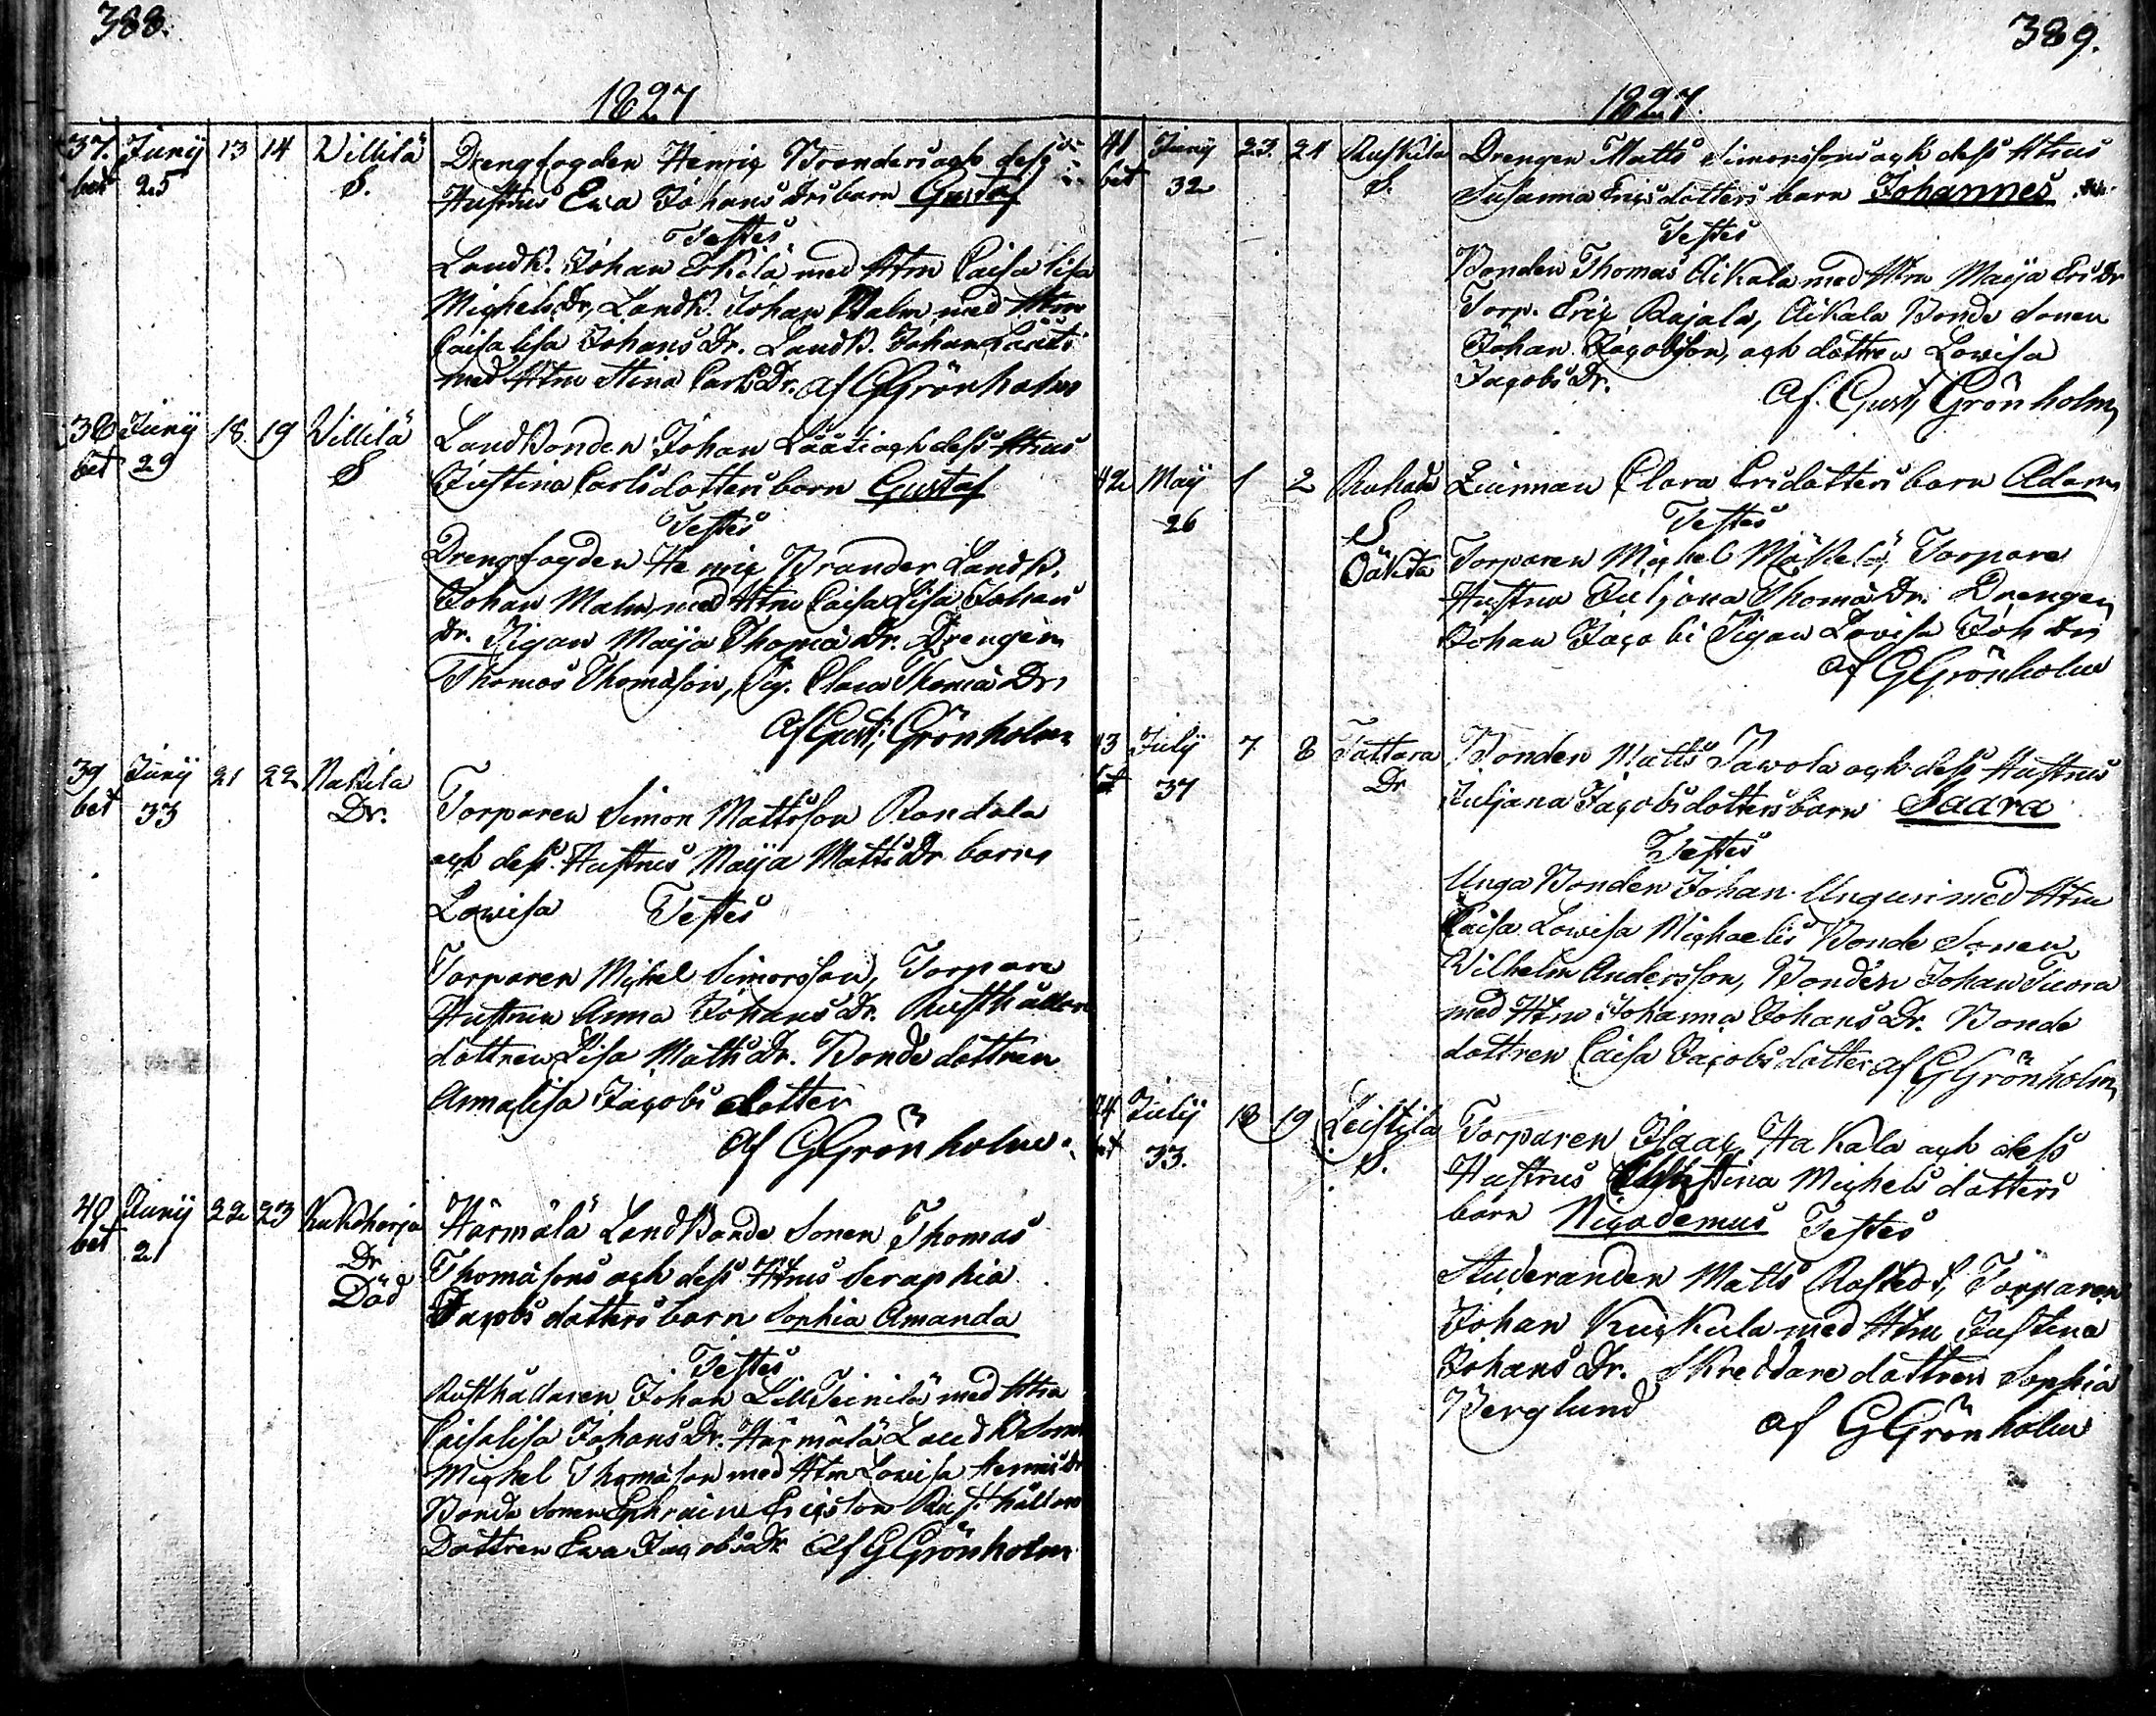 388.
1827
37. Junij 13 14 Willilä Drengfogden Henric Branders och dess
bet 25 S. Hustrus Ewa Johans Drs barn Gustaf
Testes
Landb. Johan Erkilä med Htru Caisa Lisa
Michels Dr, Landb. Johan Malm med Htru
Caisa Lisa Johans Dr. Landb. Johan Lääti
med Htru Stina Carls Dr. af GGrönholm
38 Junij 18 19 Willilä Landbonden Johan Lääti och dess Htrus
bet 29 S Justina Carlsdotters barn Gustaf
Testes
Drengfogden Henric Brander Landb.
Johan Malm med Htru Caisa Lisa Johans
Dr. Pigan Maija Thomæ Dr. Drengen
Thomas Thomasson, Pig. Clara Thomæ Dr
af Gust: Grönholm
39 Junij 21 22 Nakkila Torparen Simon Mattsson Randala
bet 33 Dr. och dess Hustrus Maija Matts Dr barn
Lowisa Testes
Torparen Michel Simonsson, Torpare
Hustrun Anna Johans Dr. Rusthållare
dottren Lisa Matts Dr. Bonde dottren
Annalisa Jacobs dotter
af GGrönholm.
40 Junij 22 23 Kukkharja Härmälä Landbonde Sonen Thomas
bet 2 Dr Thomæsons och dess Htrus Seraphia
Död Jacobs dotters barn Sophia Amanda
Testes
Rusthållaren Johan Lill Teinilä med Htru
Caisalisa Johans Dr. Härmälä Landb Sonen
Michel Thomason med Htru Lowisa Henrics Dr
Bonde Sonen Ephraim Ericsson Rusthållare
Dottren Ewa Jacobs Dr af GGrönholm
389.
1827.
41 Junij 23 24 Ruskila Drengen Matts Simonssons och dess Htrus
bet 32 S. Susanna Ericsdotters barn Johannes
Testes
Bonden Thomas Aikala med Htru Maija Eri Dr
Torp. Eric Rajala, Aikala Bonde Sonen
Johan Jacobsson, och dottren Lowisa
Jacobs Dr.
af. Gust, Grönholm
42 Maij 1 2 Qvinnan Clara Eridotters barn Adam
26 S Testes
Oäkta Torparen Michel Mäkelä, Torpare
Hustrun Juljana Thomæ Dr. Drengen
Johan Jacobi Pigan Lovisa Joh Dr
af GGrönholm
43 July 7 8 Tattara Bonden Matts Tawola och dess Hustrus
bet 37 Dr Juljana Jacobsdotters barn Saara
Testes
Unga Bonden Johan Unguri med Htru
Caisa Lowisa Michaelis Bonde Sonen
Wilhelm Andersson, Bonden Johan Tuora
med Htru Johanna Johans Dr. Bonde
dottren Caisa Jacobsdotter af GGrönholm
44 July 18 19 Leistila Torparen Isaac Hakala och dess
bet 33. S. Hustrus Christina Michels dotters
barn Nicodemus Testes
Studeranden Matts Rostedt, Torparen
Johan Kuckula med Htru Justina
Johans Dr. Skreddare dottren Sophia
Berglund af GGrönholm